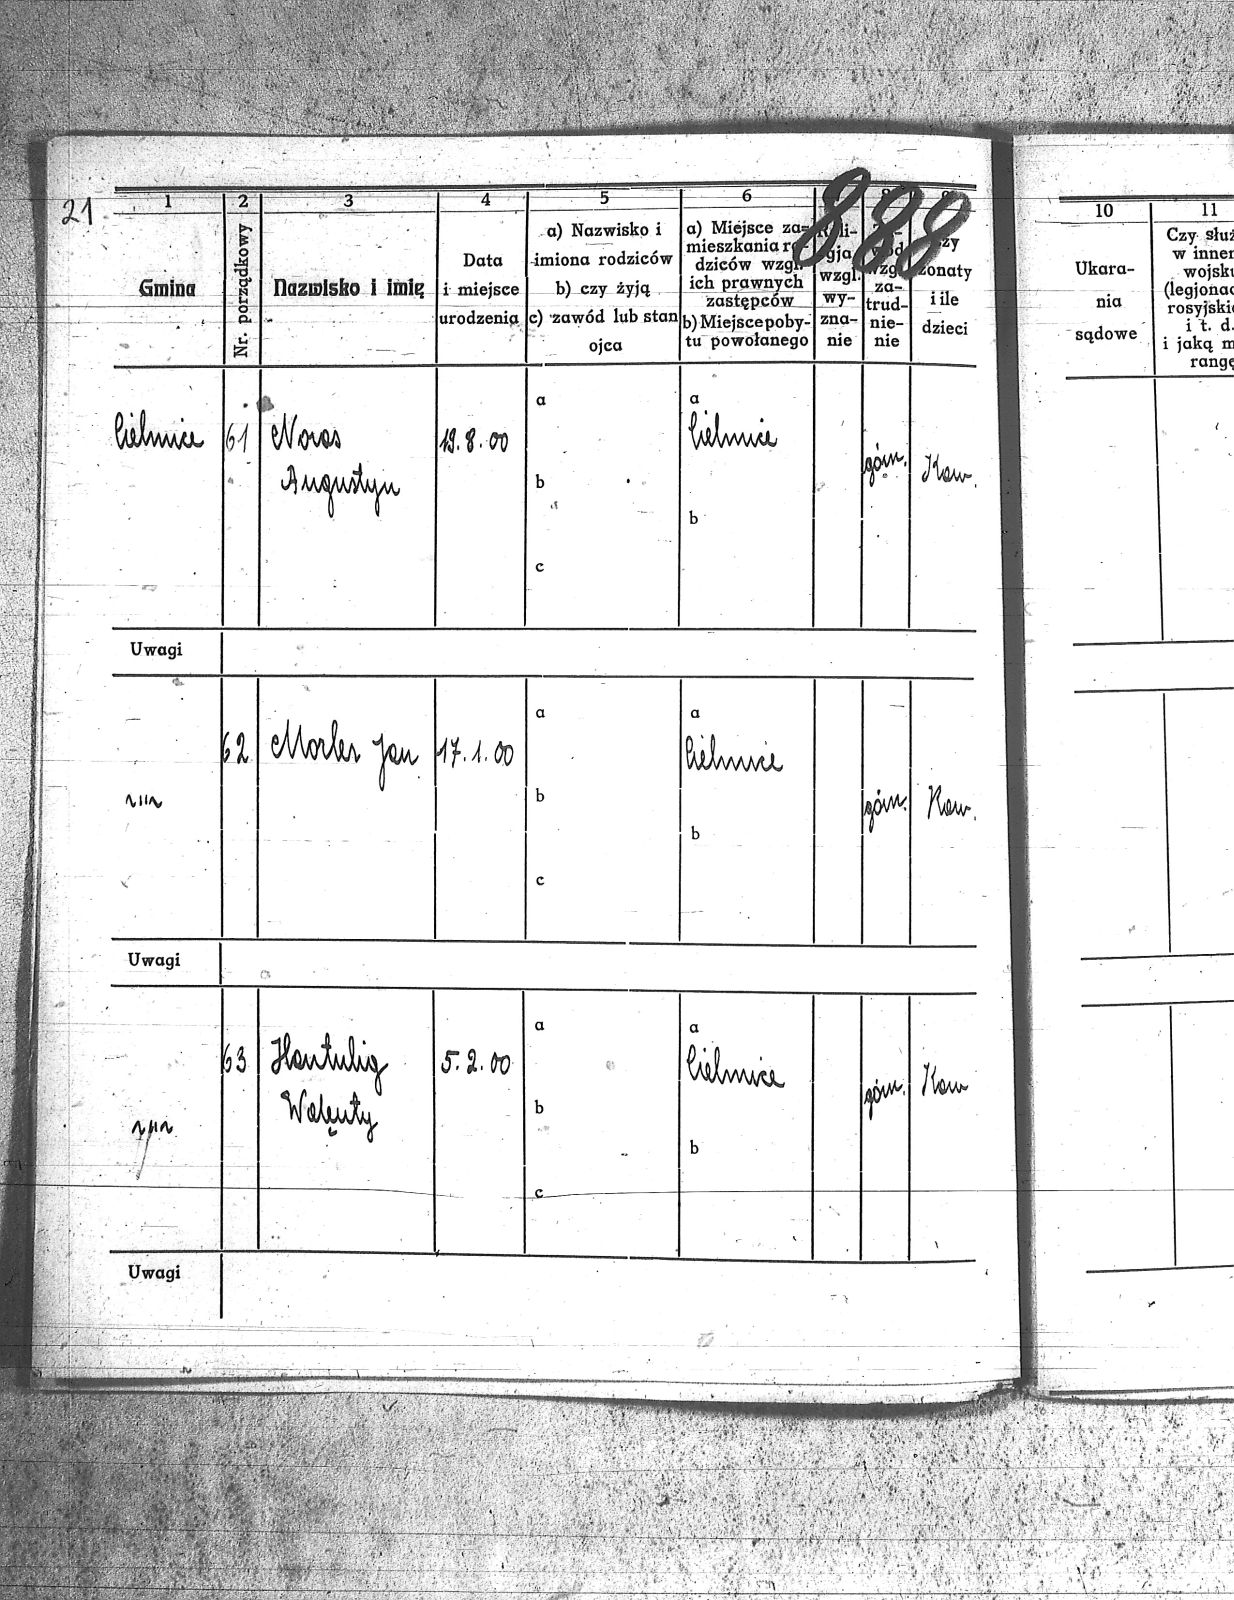 21
888
1 2 3 4 5 6 8 9
Gmina
Nr. porządkowy
Nazwisko i imię
Data
i miejsce
urodzenia
a) Nazwisko i
imiona rodziców
b) czy żyją
c) zawód lub stan
ojca
a) Miejsce za-
mieszkania ro-
dziców wzgl.
ich prawnych
zastępców
b) Miejsce poby-
tu powołanego
Reli-
gja
wzgl.
wy-
zna-
nie
Za-
wód
wzgl.
za-
trud-
nie-
nie
Czy
żonaty
i ile
dzieci
10 11
Ukara-
nia
sądowe
Czy służ
w innem
wojsku
(legjonac
rosyjskie
i t. d.
i jaką m
rangę
Cielmice 61 Noras 19.8.00 a a Cielmice górn. Kaw.
Augustyn
b
b
c
Uwagi
~"~ 62 Morler Jan 17.1.00 a a Cielmice górn. Kaw.
b
b
c
Uwagi
~"~ 63 Hantulig 5.2.00 a a Cielmice górn. Kaw
Walenty
b
b
c
Uwagi